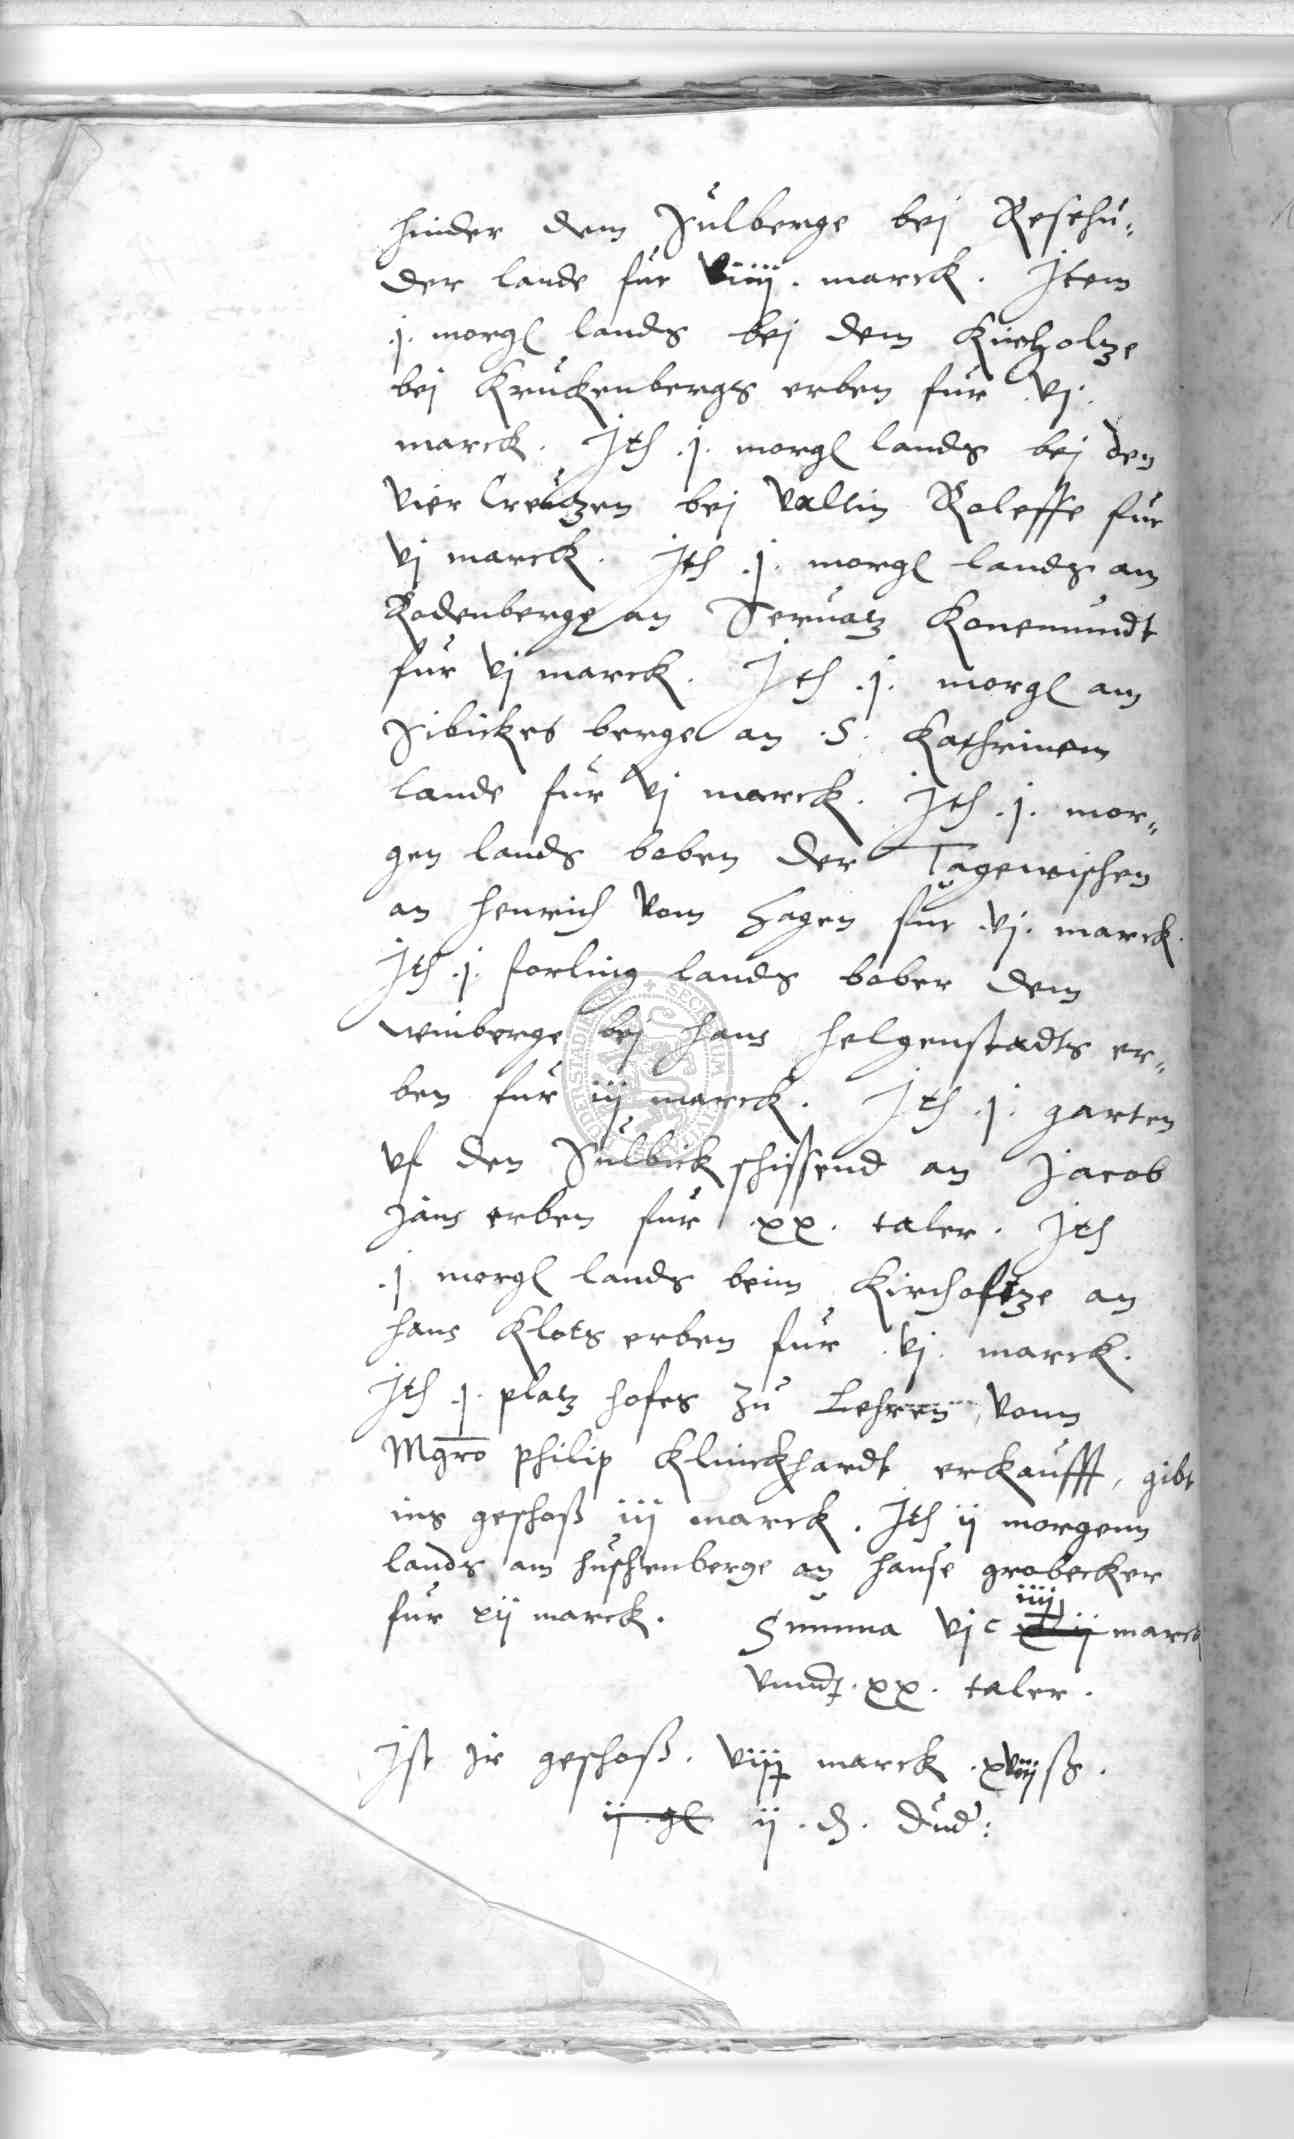 hinder dem Sulberge bej Resehu-
der lande fur viiij. marck. Item
.j. morg lands bej dem Kircholtze
bej Kruckenbergs erben fur .vj.
marck. Ith .j. morg lands bej den
vier Creutzen bej Valtin Roleffse fur
vj marck. Ith .j. morg lands am
Rodenberge an Servatz Konemundt
fur vj marck. Ith .j. morg am
Sibickes berge an .S. Kathrinem
lande fur vj marck. Ith .j. mor-
gen lands boben der Tagewischen
an henrich vom Hagen fur .vj. marck.
Ith .j. forling lands bober dem
winberge bej hans helgenstadts er-
ben fur iij marck. Ith .j. garten
vf den Sulbick schissend an Jacob
Jans erben fur .xx. taler. Ith
.j morg lands beim Kircholtze an
hans Klots erben fur .vj. marck.
Ith .j. platz hofes zu Lehren, vonn
Mgro philip Klinckhardt erkaufft, gibt
ins geschoß iij marck. Ith ij morgenn
lands am huschenberge an hanse grobecker
fur xij marck. Summa vj c iiij marck
vnndt .xx. taler.
Ist Jr geschoß. viij marck .xviij ß.
ij .gl ij . d. dud:
SECRETUM